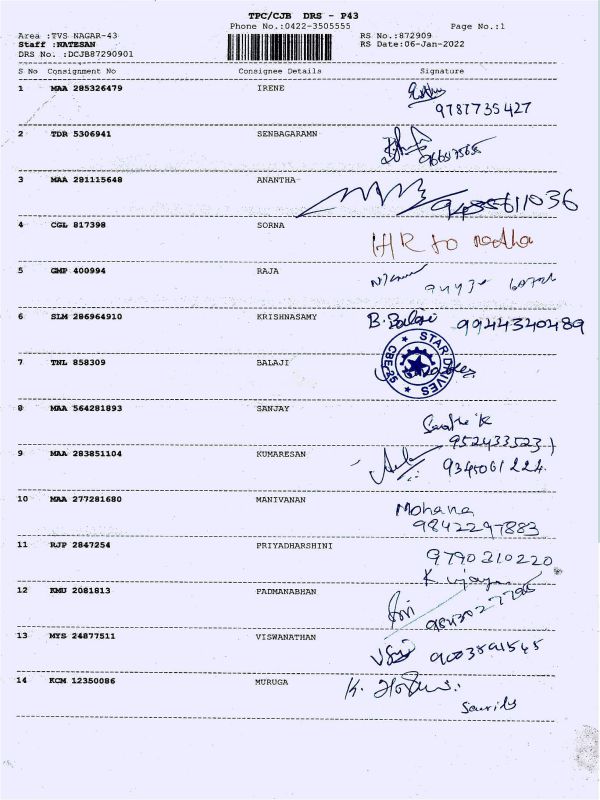 TPC/CJB DRS - P43
Phone No.:0422-3505555 Page No.:1
Area :TVS NAGAR-43 RS No.:872909
Staff :NATESAN RS Date:06-Jan-2022
DRS No. :DCJB87290901
S No Consignment No Consignee Details Signature
1 MAA 285326479 IRENE
9787735427
2 TDR 5306941 SENBAGARAMN
3 MAA 281115648 ANANTHA
4 CGL 817398 SORNA
5 GMP 400994 RAJA
6 SLM 286964910 KRISHNASAMY B. Balaji 99444340489
7 TNL 858309 BALAJI
STAR DRIVES CBE-25
8 MAA 564281893 SANJAY
9524335231
9 MAA 283851104 KUMARESAN 9345061224
10 MAA 277281680 MANIVANAN Mohana
9842297883
11 RJP 2847254 PRIYADHARSHINI 9790310220
12 KMU 2081813 PADMANABHAN
13 MYS 24877511 VISWANATHAN 9003891545
14 KCM 12350086 MURUGA